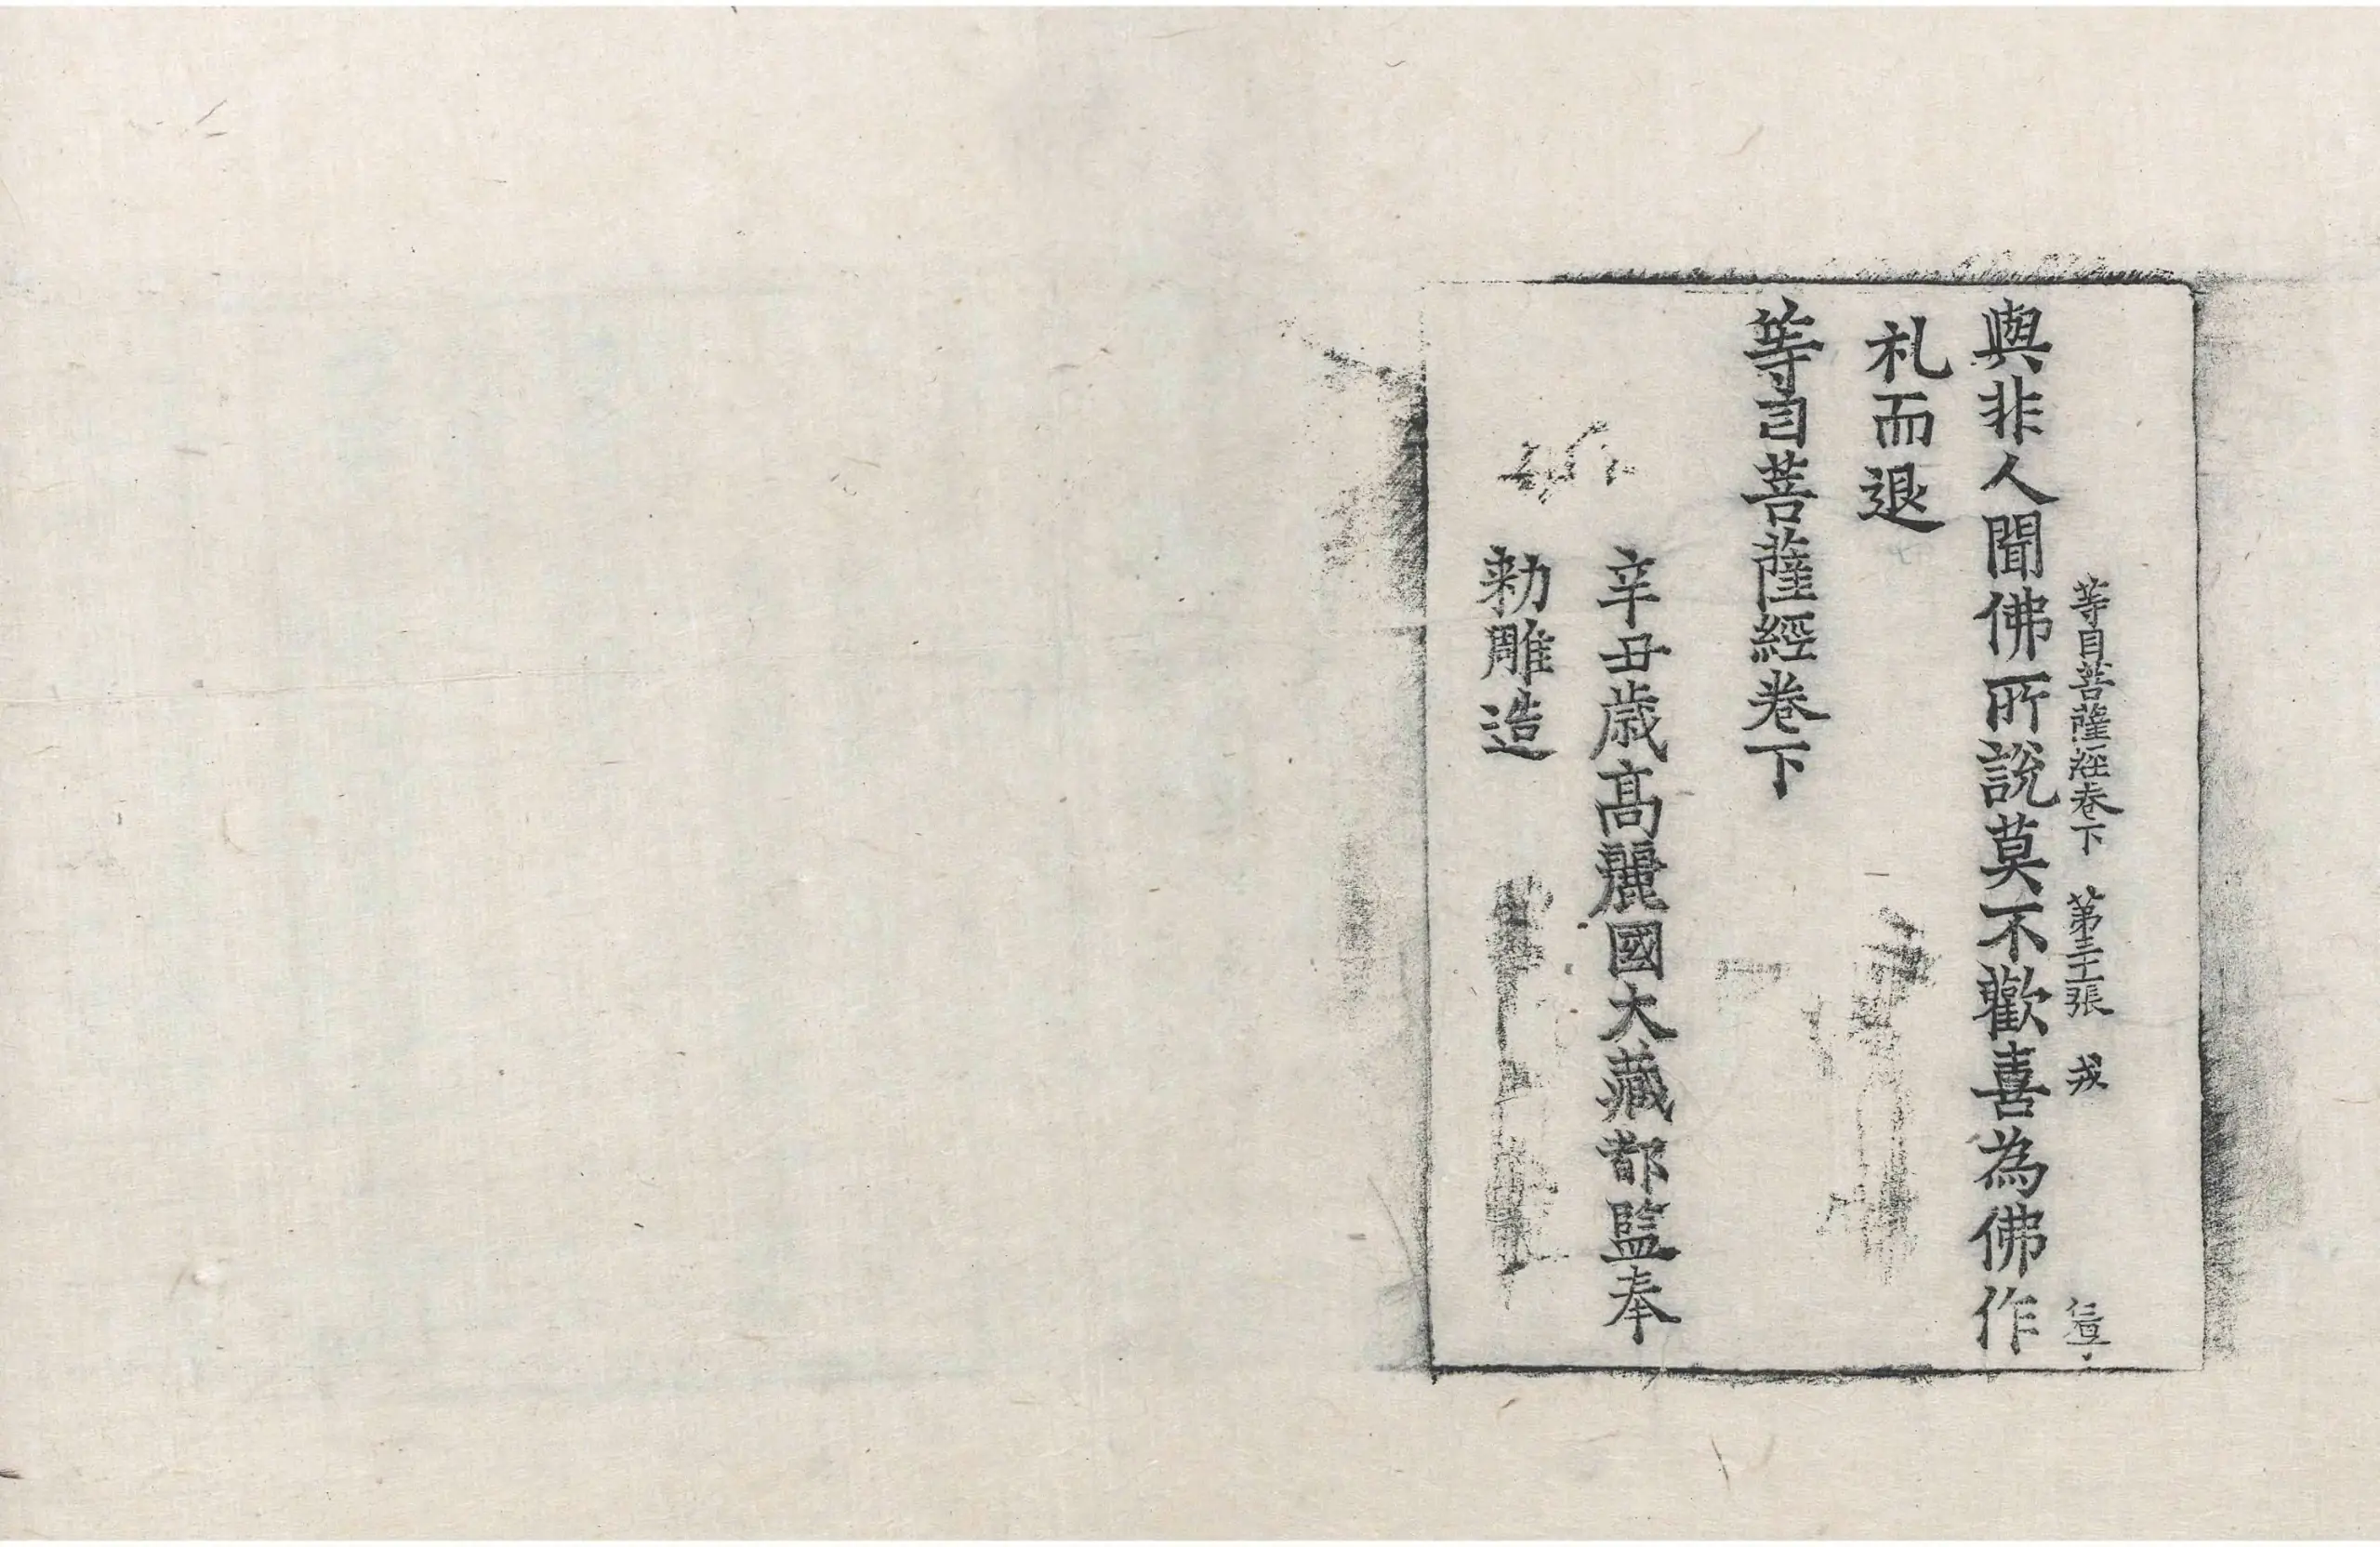 等目菩薩經卷下 第張 戎
與非人聞佛所說莫不歡喜為佛作
礼而退
等目菩薩經卷下
辛丑歲高麗國大藏都監奉
勑雕造